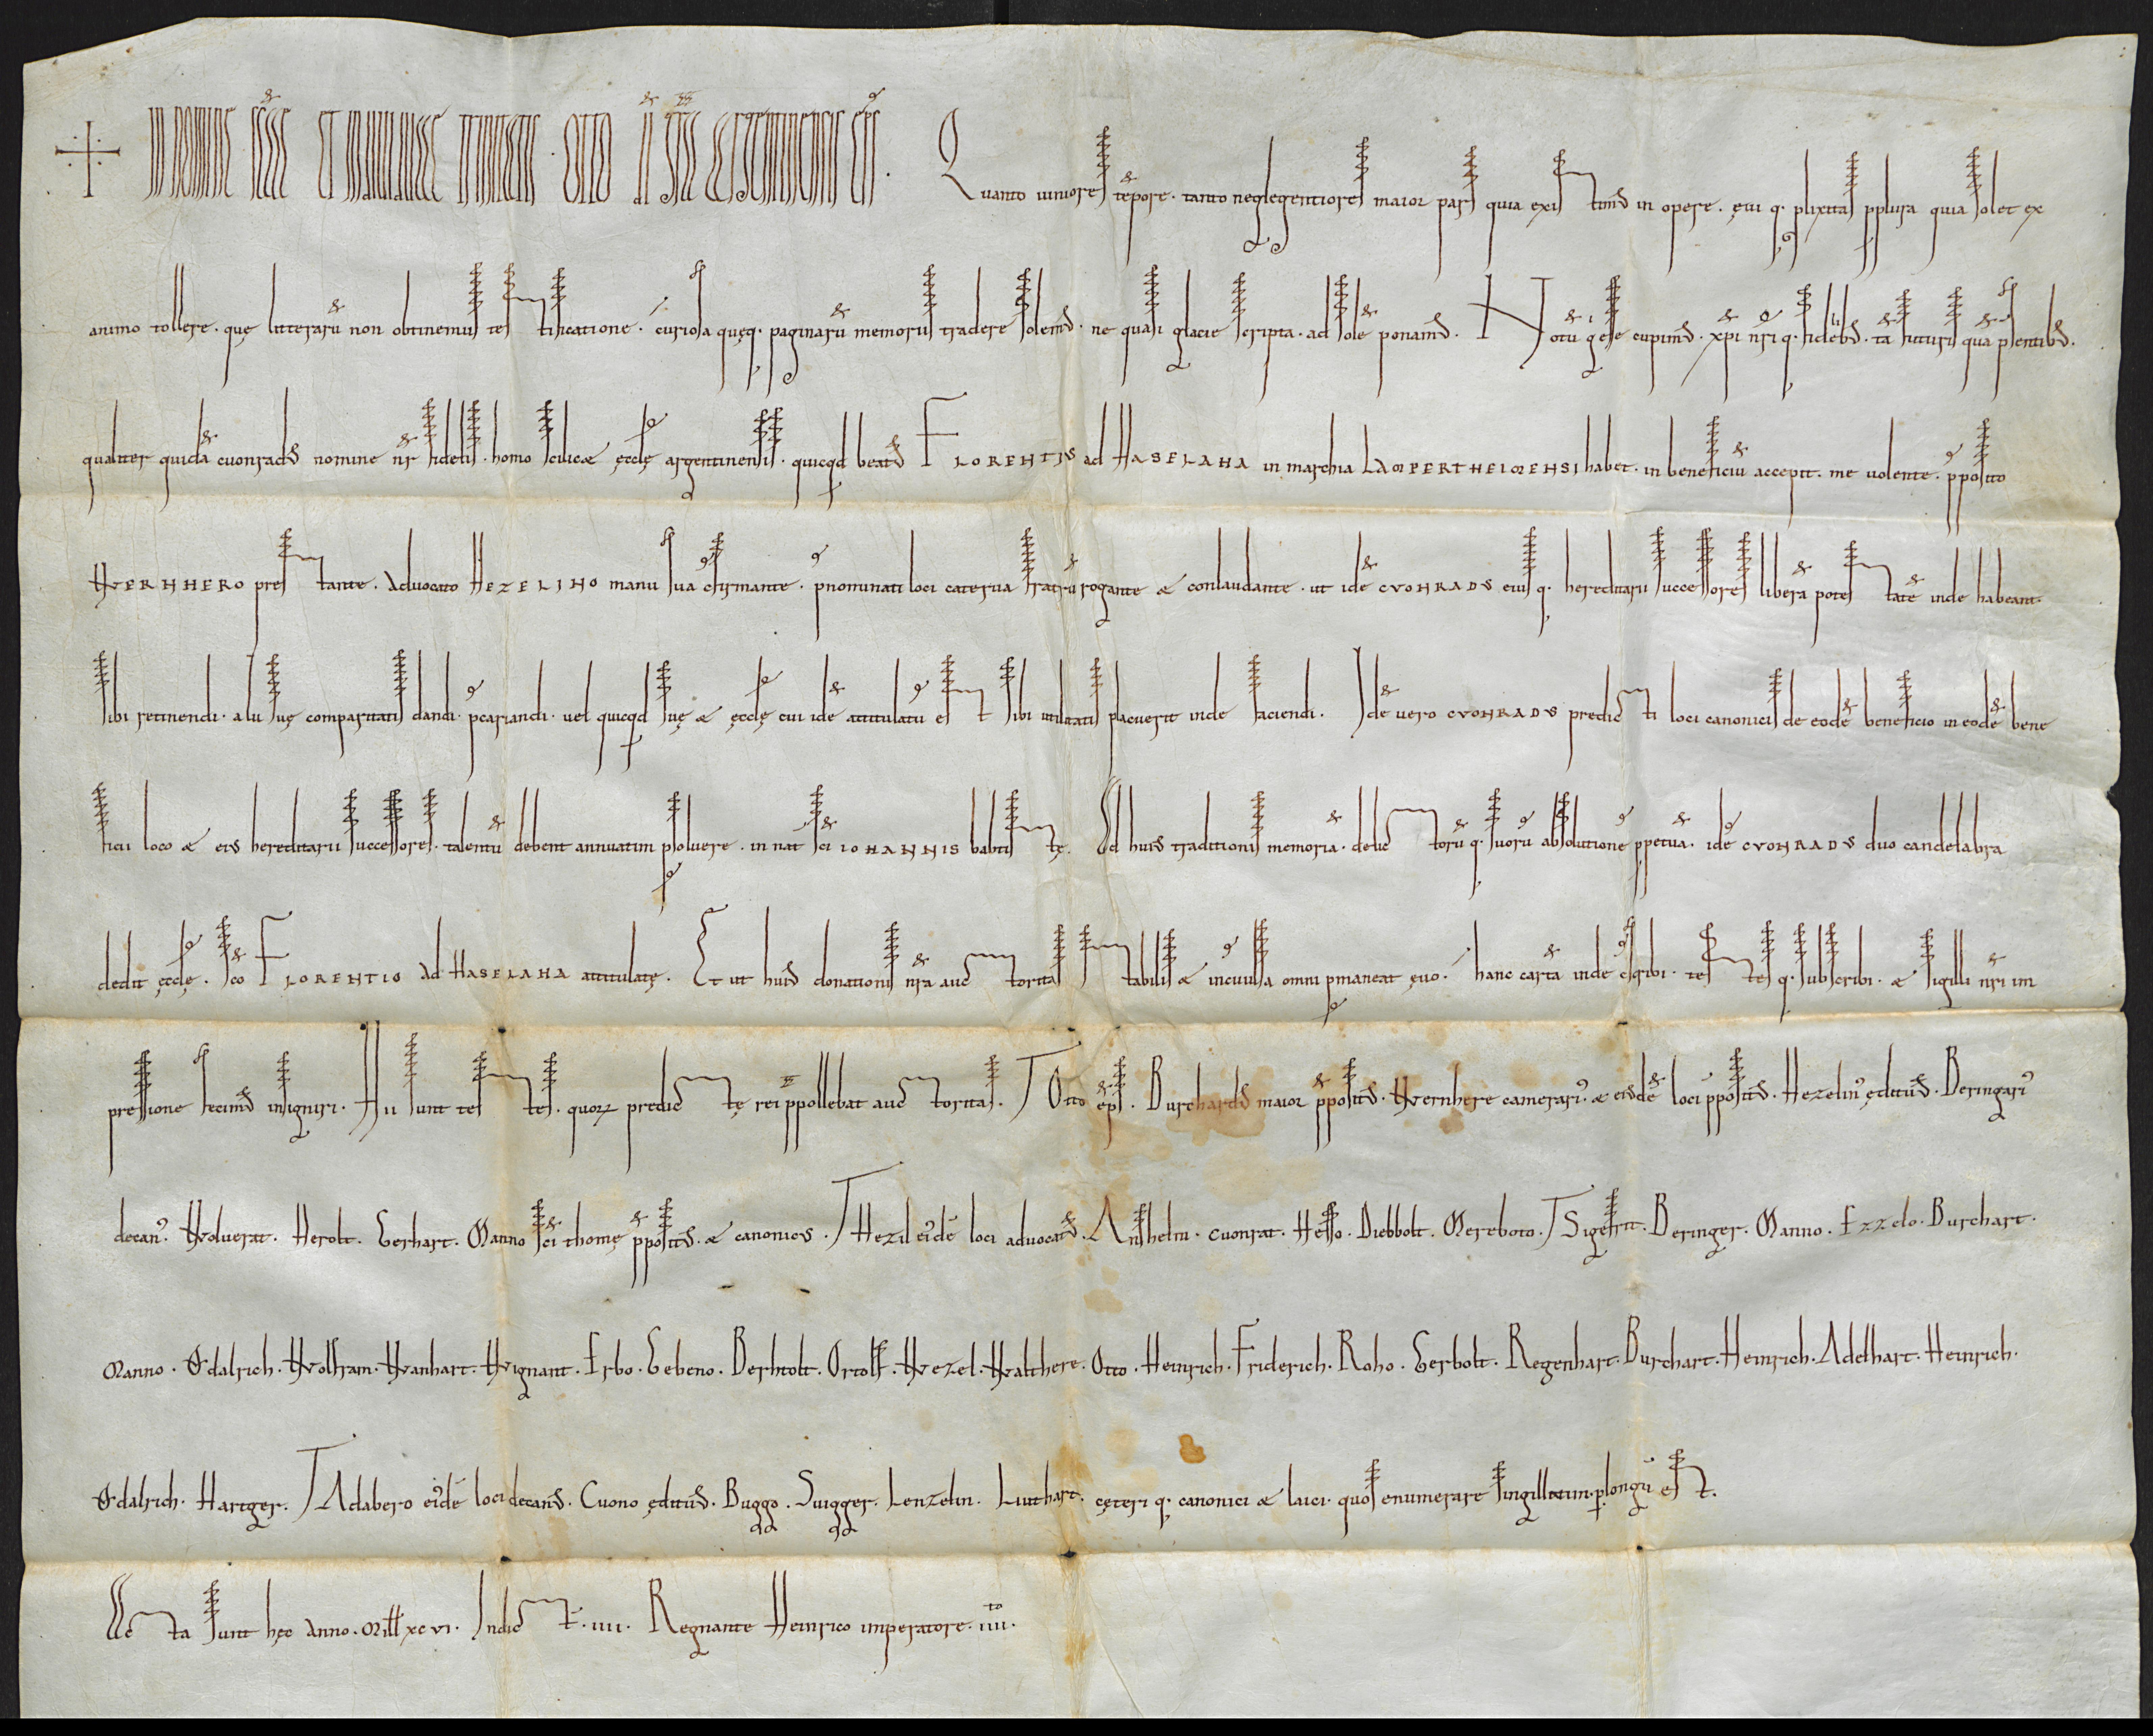 IN NOMINE SCE ET INDIVIDUE TRINITATIS. OTTO DI GRA ARGENTINENSIS EPS. Quanto iuniores tēpore. tanto neglegentiores maior pars quia existim⁹ in opere. ęui q. plixitas pplura quia solet ex
animo tollere. quę litterarū non obtinemus testificatione. curiosa quęq. paginarū memoriis tradere solem⁹. ne quasi glacie scripta. ad solē ponam⁹. Notū g̊ esse cupim⁹. xpi nr̄i q. fidelib⁹. tā futuris quā p̄sentib⁹.
qualiter quidā cuonrad⁹ nomine nr̄ fidelis. homo scilicæ ęccłę argentinensis. quicqd beat⁹ FLORENTIUS ad HASELAHA in marchia LAMPERTHEIMENSI habet. in beneficiū accepit. me uolente. pposito
WERNHERO prestante. Advocato HEZELINO manu sua cfirmante. pnominati loci caterua fratrū rogante & conlaudante. ut idē CVONRADVS eius q. hereditarii successores liberā potestatē inde habeant.
sibi retinendi. aliis suę comparitatis dandi. pcariandi. uel quicqd suę & ęccłę cui idē attitulatū est sibi utilitatis placuerit inde faciendi. Idē uero CVONRADVS predicti loci canonicis de eodē beneficio in eodē bene
ficii loco & ei⁹ hereditarii successores. talentū debent annuatim psoluere. in nat̄ sc̄i IOHANNIS babtistę. Ad hui⁹ traditionis memoriā. delictorū q. suorū absolutionē ppetuā. idē CVONRADVS duo candelabra
dedit ęccłę. sc̄o FLORENTIO ad HASELAHA attitulatę. Et ut hui⁹ donationis nr̄a auctoritas stabilis & incōuulsa omni pmaneat ęuo. hanc cartā inde cscribi. testes q. subscribi. & sigilli nr̄i im
pressione fecim⁹ insigniri. Hii sunt testes. quoꝝ predictę rei ppollebat auctoritas. Otto ep̄s. Burchard⁹ maior pposit⁹. Wernhere camerari⁹. & ei⁹dē loci pposit⁹. Hezelin⁹ ędituus. Beringari⁹
decan⁹. Wolverat. Herolt. Gerhart. Manno sc̄i thomę pposit⁹. & canonicus. Hezil ei⁹dē loci aduocat⁹. Anshelm. Cuonrat. Hesso. Diebbolt. Mereboto. Sigefrit. Beringer. Manno. Ezzelo. Burchart.
Manno. Ǒdalrich. Wolfram. Wanhart. Wignant. Erbo. Gebeno. Berhtolt. Ortolf. Wezel. Walthere. Otto. Heinrich. Friderich. Roho. Gerbolt. Regenhart. Burchart. Heinrich. Adelhart. Heinrich.
Ǒdalrich. Hartger. Adabero ei⁹dē loci decan⁹. Cuono ędituus. Buggo. Suigger. Lenzelin. Liuthart. cęteri q. canonici & laici. quos enumerare singillatim. plongū est.
Acta sunt hęc Anno. Mill xc vi. Indict̄. iiii. Regnante Heinrico imperatore. iiii.to